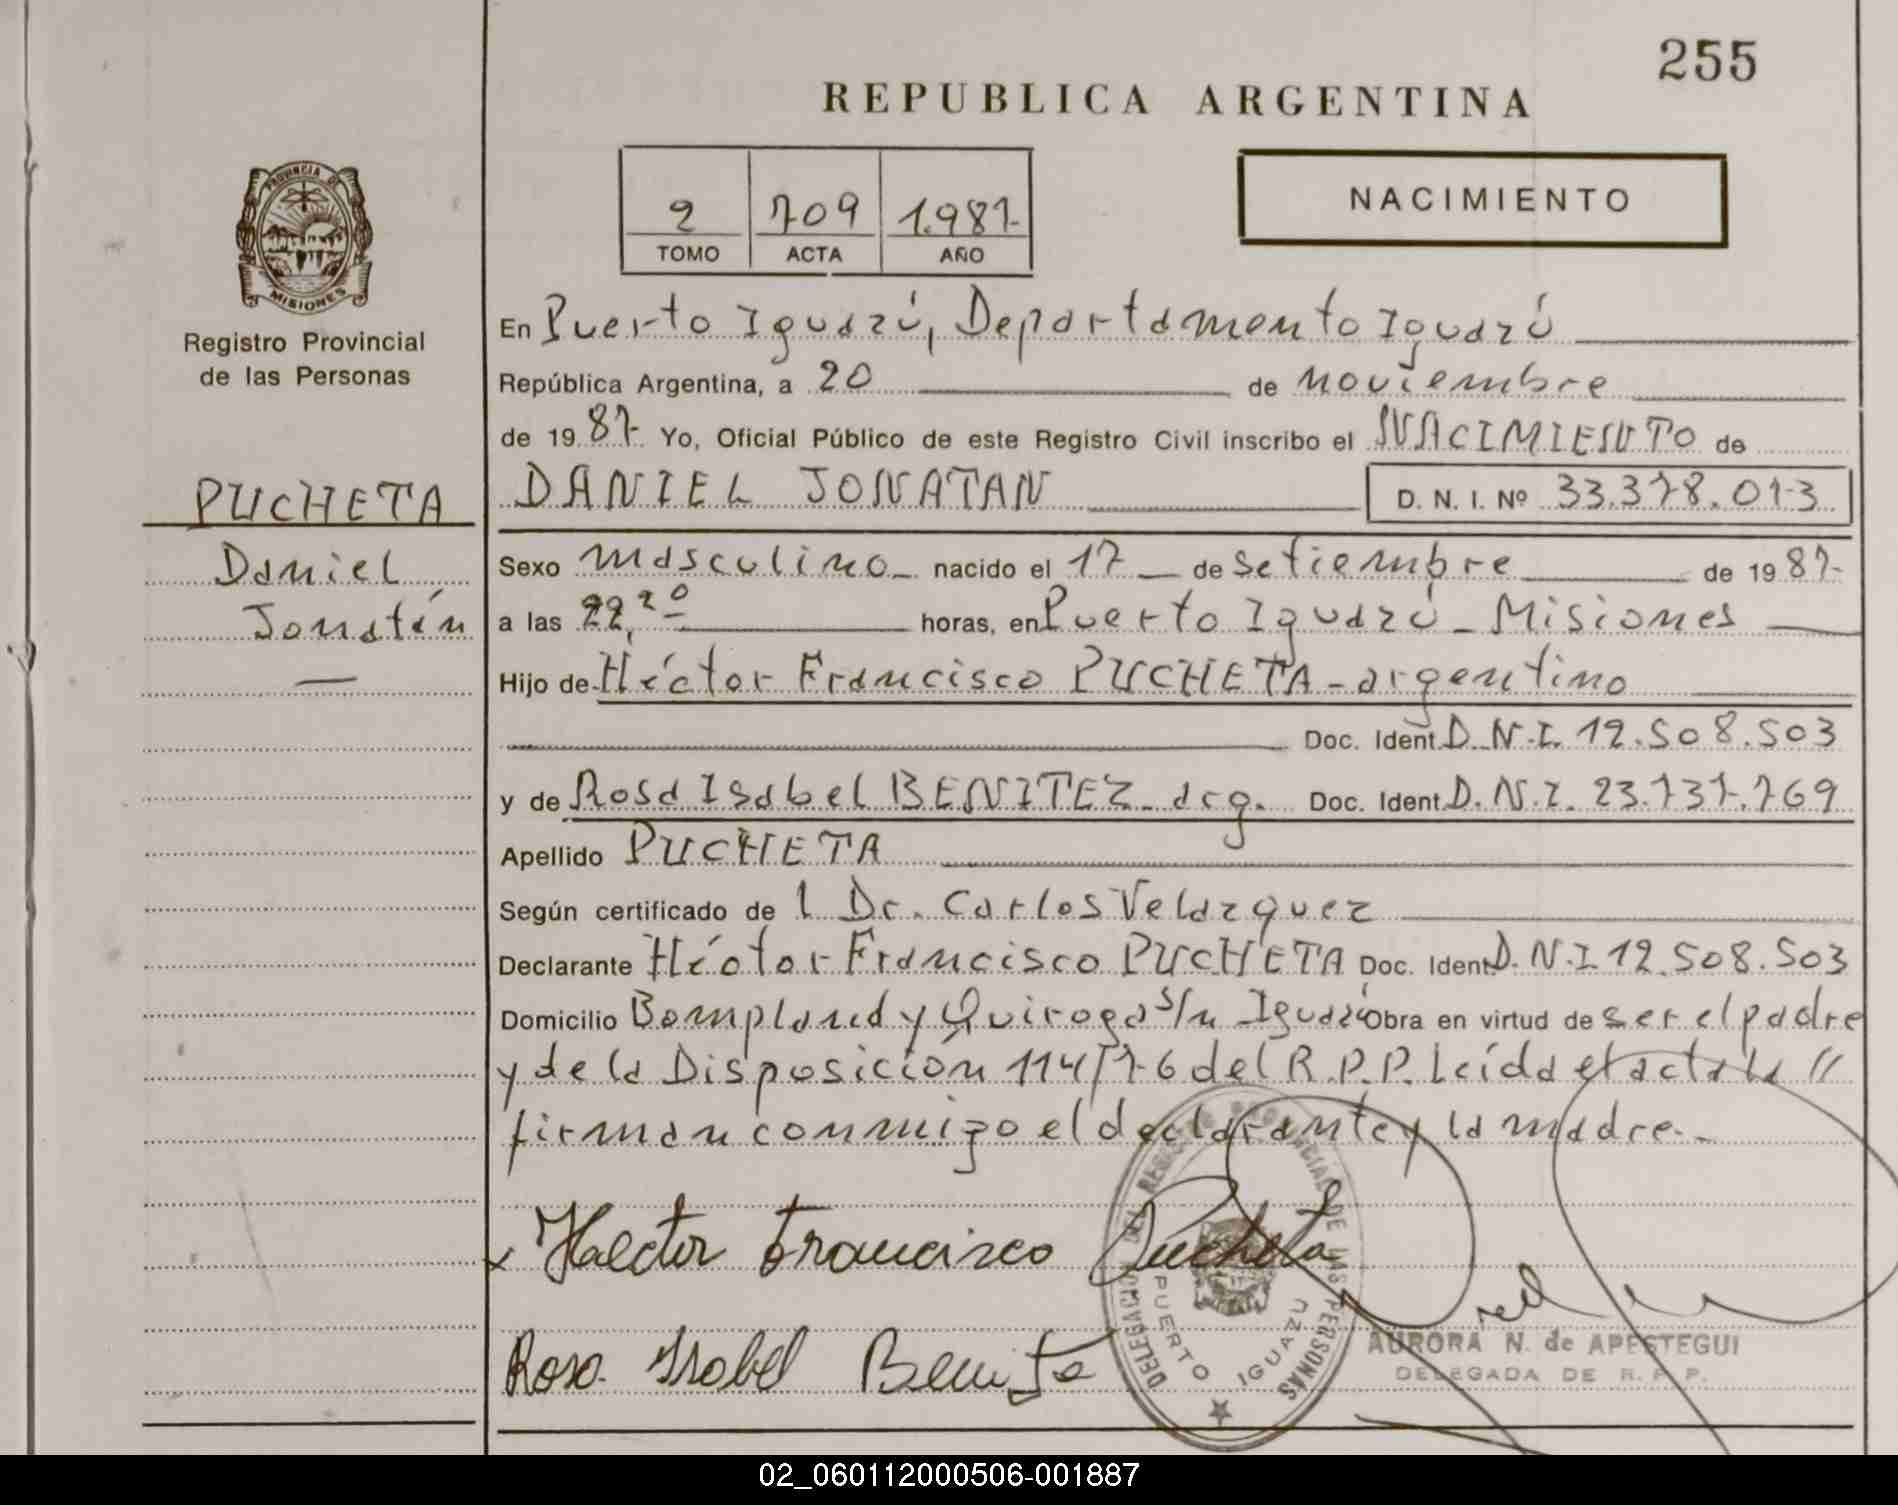 255
REPUBLICA ARGENTINA
2 709 1.987-
TOMO ACTA AÑO
NACIMIENTO
PROVINCIA DE
MISIONES
Registro Provincial
de las Personas
PUCHETA
Daniel
Jonatán
En Puerto Iguazú, Departamento Iguazú
República Argentina, a 20 de noviembre
de 19 87- Yo, Oficial Público de este Registro Civil inscribo el NACIMIENTO de
DANIEL JONATAN D. N. I. Nº 33.378.013
Sexo masculino nacido el 17 de setiembre de 19 87-
a las 22,20 horas, en Puerto Iguazú - Misiones
Hijo de Héctor Francisco PUCHETA - argentino
Doc. Ident. D.N.I. 12.508.503
y de Rosa Isabel BENITEZ - arg. Doc. Ident. D.N.I. 23.737.769
Apellido PUCHETA
Según certificado de l Dr. Carlos Velazquez
Declarante Héctor Francisco PUCHETA Doc. Ident. D.N.I 12.508.503
Domicilio Bompland y Quiroga s/n Iguazú Obra en virtud de ser el padre
y de la Disposición 114/76 del R.P.P. Leída el acta la //
firman conmigo el declarante y la madre.-
x Haector Francisco Pucheta
Rosa Isabel Benite
DELEGACION DEL REGISTRO PROVINCIAL DE LAS PERSONAS
PUERTO IGUAZU
AURORA N. de APESTEGUI
DELEGADA DE R. P. P.
02_060112000506-001887